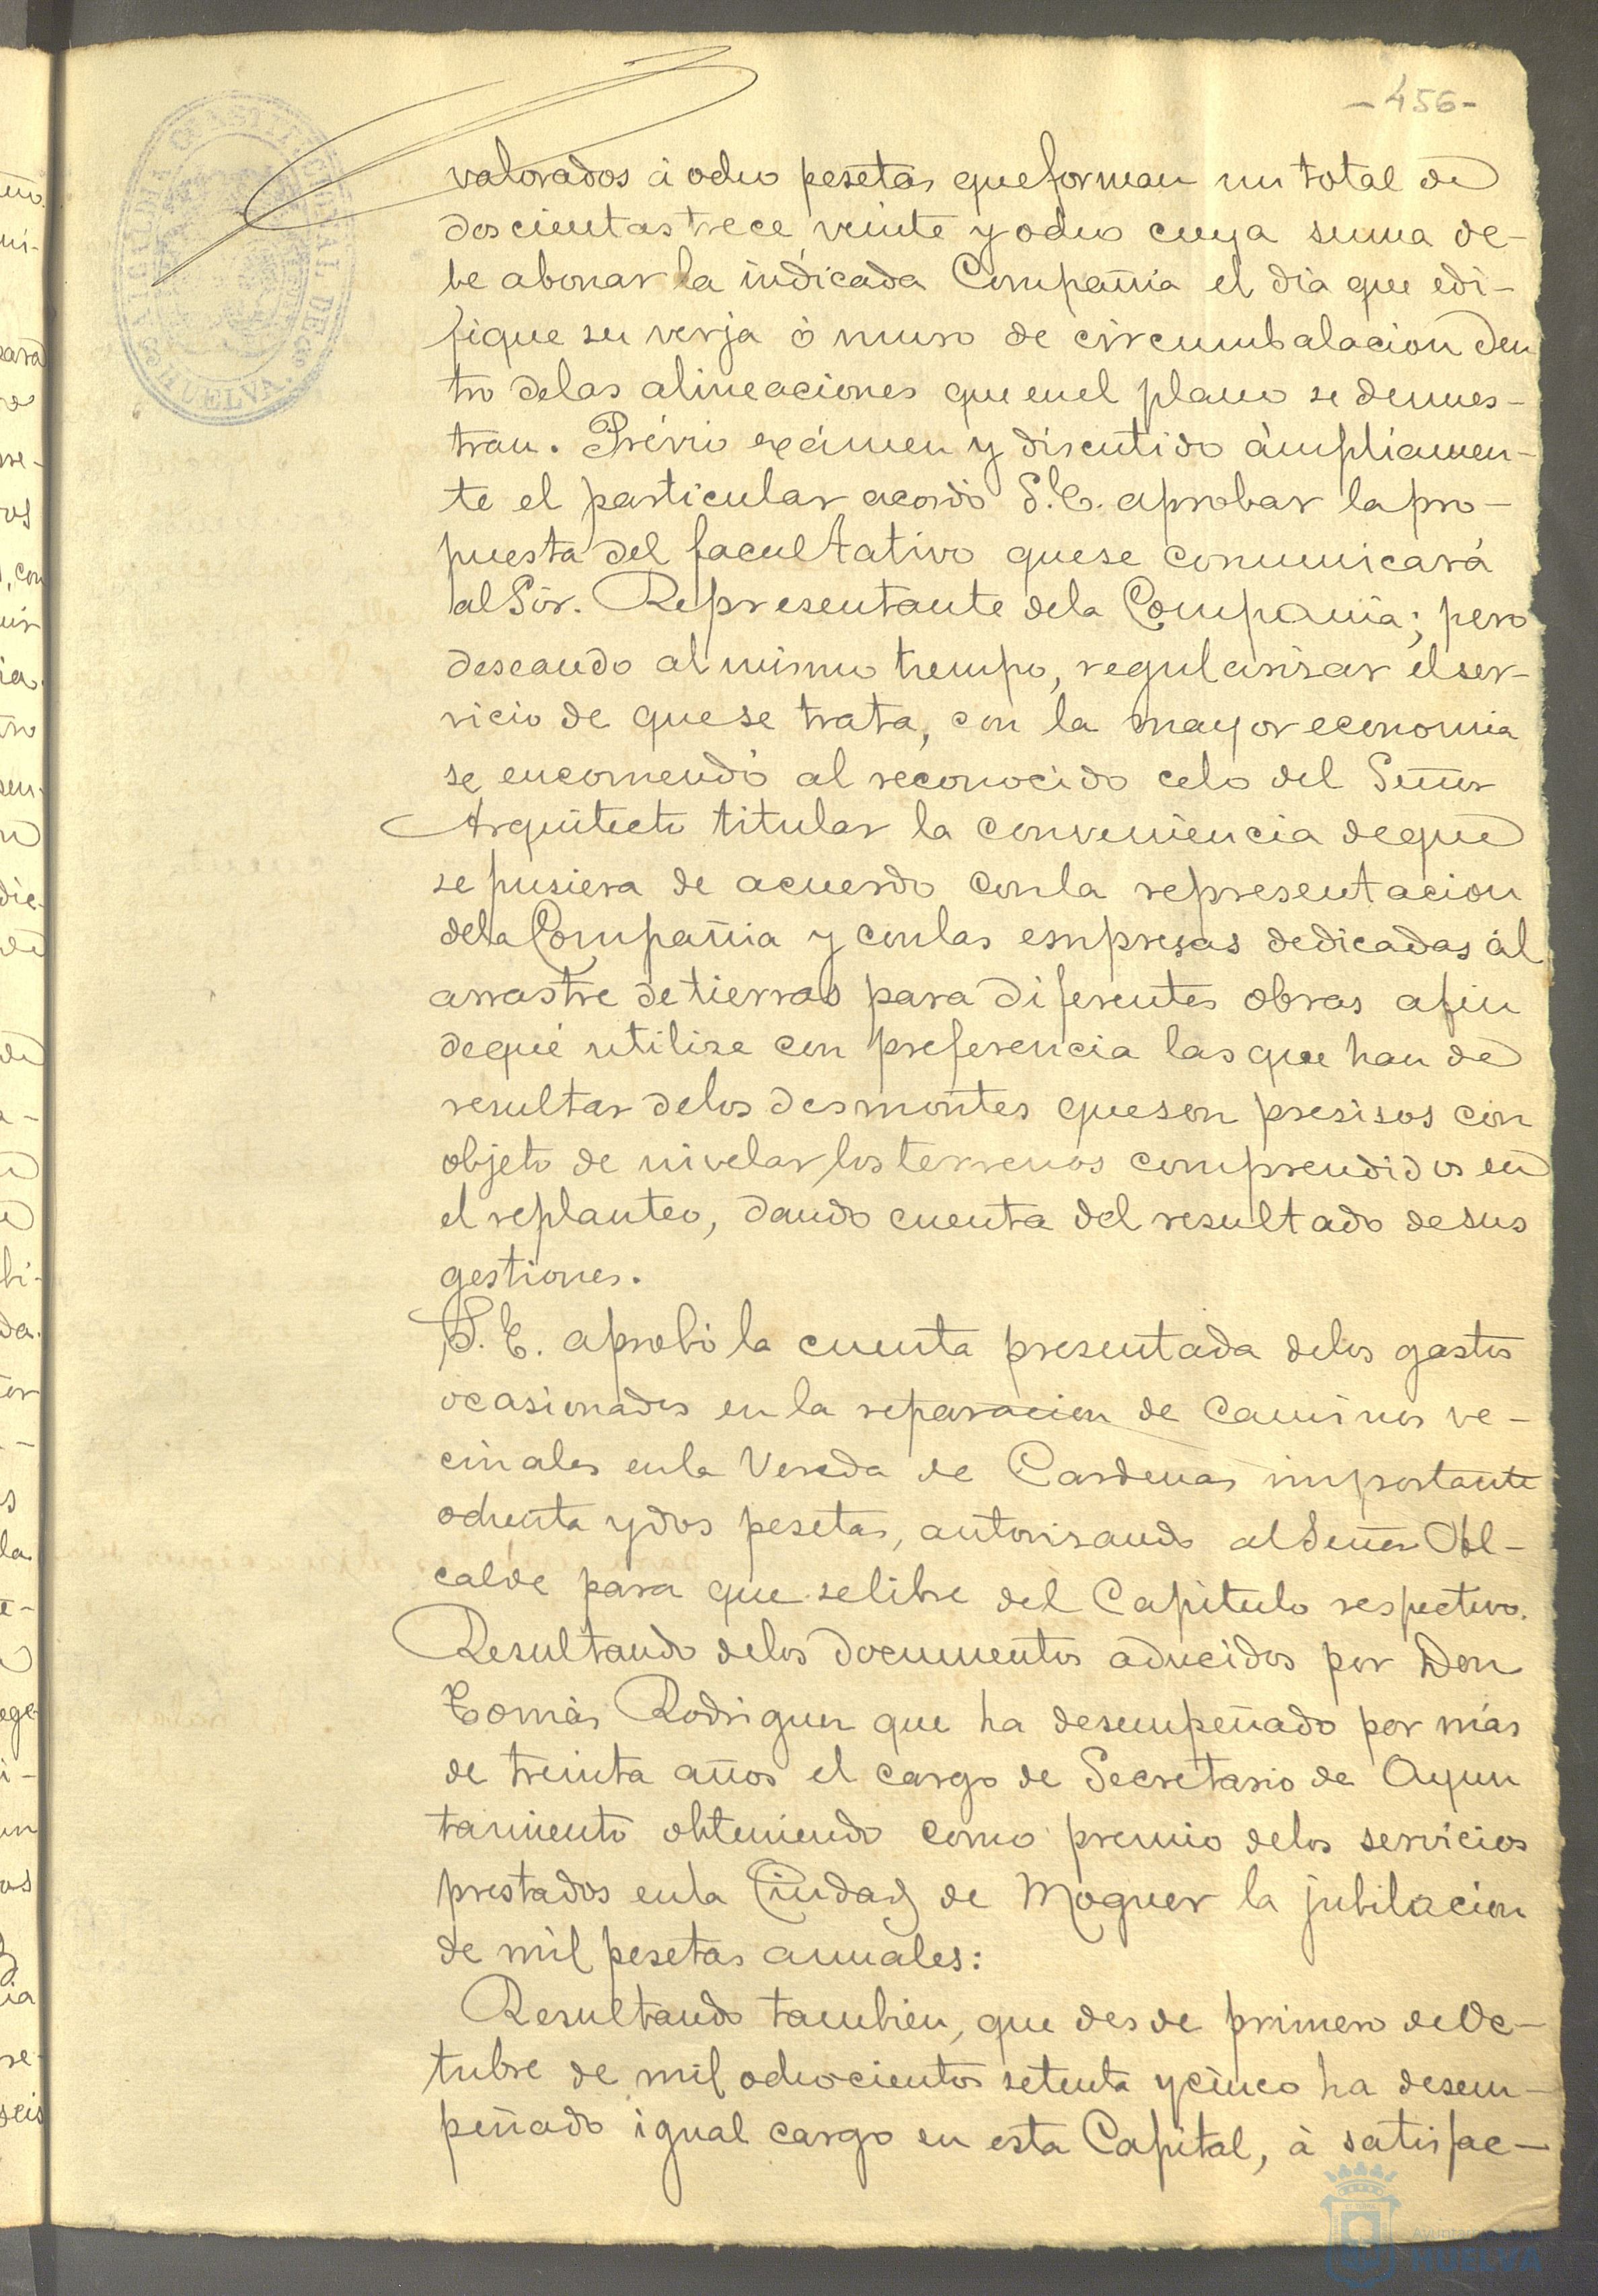 -456-
ALCALDIA CONSTITUCIONAL DE HUELVA.
valorados á ocho pesetas que forman un total de
doscientas trece veinte y ocho cuya suma de-
be abonar la indicada Compañia el dia que edi-
fique su verja ó muro de circumbalacion den
tro de las alineaciones que en el plano se demues-
tran. Prévio exámen y discutido ámpliamen-
te el particular acordó S.E. aprobar la pro-
puesta del facultativo que se comunicará
al Sór. Representante de la Compania; pero
deseando al mismo tiempo, regularisar el ser-
vicio de que se trata, con la mayor economia
se encomendó al reconocido celo del Señor
Arquitecto titular la conveniencia de que
se pusiera de acuerdo con la representacion
de la Compañia y con las empresas dedicadas ál
arrastre de tierras para diferentes obras afin
de qué utilise con preferencia las que han de
resultar de los desmontes que son presisos con
objeto de nivelar los terrenos comprendidos en
el replanteo, dando cuenta del resultado de sus
gestiones.
S. E. aprobó la cuenta presentada de los gastos
ocasionados en la reparacion de Caminos ve-
cinales en la Vereda de Cardenas importante
ochenta y dos pesetas, autorisando al Señor Al-
calde para que se libre del Capitulo respectivo.
Resultando de los documentos aducidos por Don
Tomás Rodriguez que ha desempeñado por más
de treinta años el cargo de Secretario de Ayun
tamiento obteniendo como premio de los servicios
prestados en la Ciudad de Moguer la jubilacion
de mil pesetas anuales:
Resultando tambien, que desde primero de Oc-
tubre de mil ochocientos setenta y cinco ha desem-
peñado igual cargo en esta Capital, á satisfac-
HUELVA